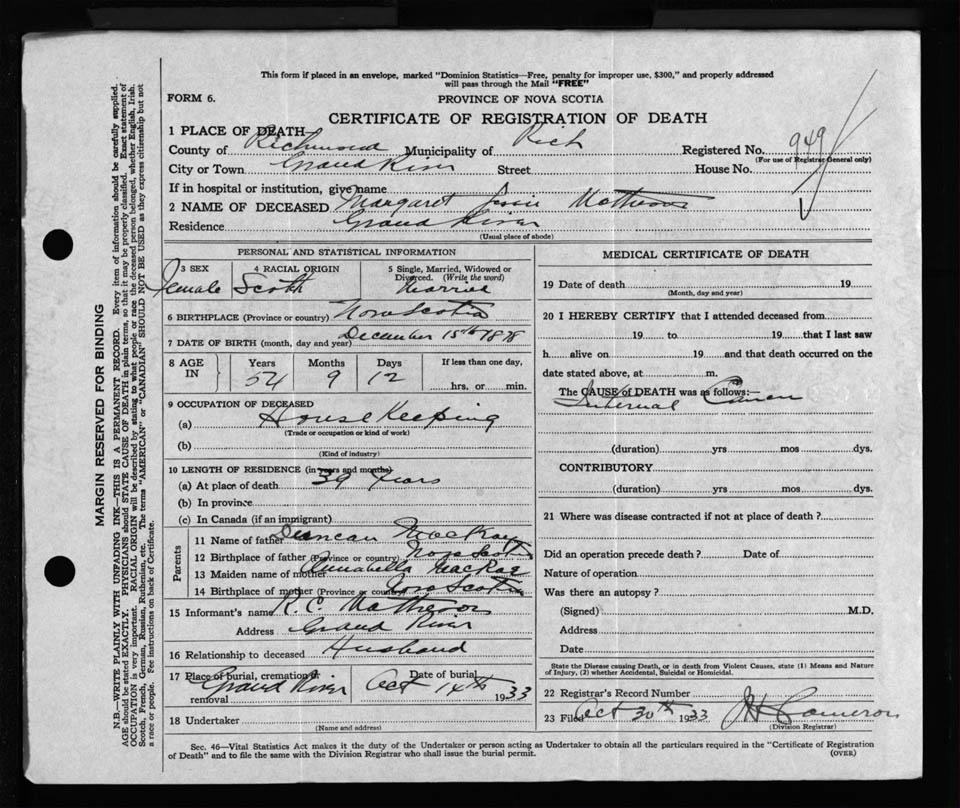 This form if placed in an envelope, marked "Dominion Statistics—Free, penalty for improper use, $300," and properly addressed
will pass through the Mail "FREE"
FORM 6.
PROVINCE OF NOVA SCOTIA
CERTIFICATE OF REGISTRATION OF DEATH
1 PLACE OF DEATH
County of Richmond Municipality of Rich Registered No. 949
(For use of Registrar General only)
City or Town Grand River Street House No.
If in hospital or institution, give name
2 NAME OF DECEASED Margaret Jessie Matheson
Residence Grand River
(Usual place of abode)
PERSONAL AND STATISTICAL INFORMATION
3 SEX 4 RACIAL ORIGIN 5 Single, Married, Widowed or
Divorced. (Write the word)
Female Scotch Married
6 BIRTHPLACE (Province or country) Nova Scotia
7 DATE OF BIRTH (month, day and year) December 15th 1878
8 AGE IN Years Months Days If less than one day,
54 9 12 hrs. or min.
9 OCCUPATION OF DECEASED
(a) House Keeping
(Trade or occupation or kind of work)
(b)
(Kind of industry)
10 LENGTH OF RESIDENCE (in years and months)
(a) At place of death 39 Years
(b) In province
(c) In Canada (if an immigrant)
Parents
11 Name of father Duncan MacKay
12 Birthplace of father (Province or country) Nova Scotia
13 Maiden name of mother Annabella MacRae
14 Birthplace of mother (Province or country) Nova Scotia
15 Informant's name R. C. Matheson
Address Grand River
16 Relationship to deceased Husband
17 Place of burial, cremation or removal Grand River Date of burial Oct 14th 1933
18 Undertaker
(Name and address)
MEDICAL CERTIFICATE OF DEATH
19 Date of death 19
(Month, day and year)
20 I HEREBY CERTIFY that I attended deceased from
19 to 19 that I last saw
h alive on 19 and that death occurred on the
date stated above, at m.
The CAUSE of DEATH was as follows:—
Internal Cancer
(duration) yrs mos dys.
CONTRIBUTORY
(duration) yrs mos dys.
21 Where was disease contracted if not at place of death?
Did an operation precede death? Date of
Nature of operation
Was there an autopsy?
(Signed) M.D.
Address
Date
State the Disease causing Death, or in death from Violent Causes, state (1) Means and Nature
of Injury, (2) whether Accidental, Suicidal or Homicidal.
22 Registrar's Record Number
23 Filed Oct 30th 1933 Cameron
(Division Registrar)
Sec. 46—Vital Statistics Act makes it the duty of the Undertaker or person acting as Undertaker to obtain all the particulars required in the "Certificate of Registration
of Death" and to file the same with the Division Registrar who shall issue the burial permit. (OVER)
MARGIN RESERVED FOR BINDING
N.B.—WRITE PLAINLY WITH UNFADING INK—THIS IS A PERMANENT RECORD. Every item of information should be carefully supplied.
AGE should be stated EXACTLY. PHYSICIANS should STATE CAUSE OF DEATH in plain terms, so that it may be properly classified. Exact statement of
OCCUPATION is very important. RACIAL ORIGIN will be described by stating to what people or race the deceased person belonged, whether English, Irish,
Scotch, French, German, Russian, Ruthenian, etc. The terms "AMERICAN" or "CANADIAN" SHOULD NOT BE USED as they express citizenship but not
a race or people. See instructions on back of Certificate.